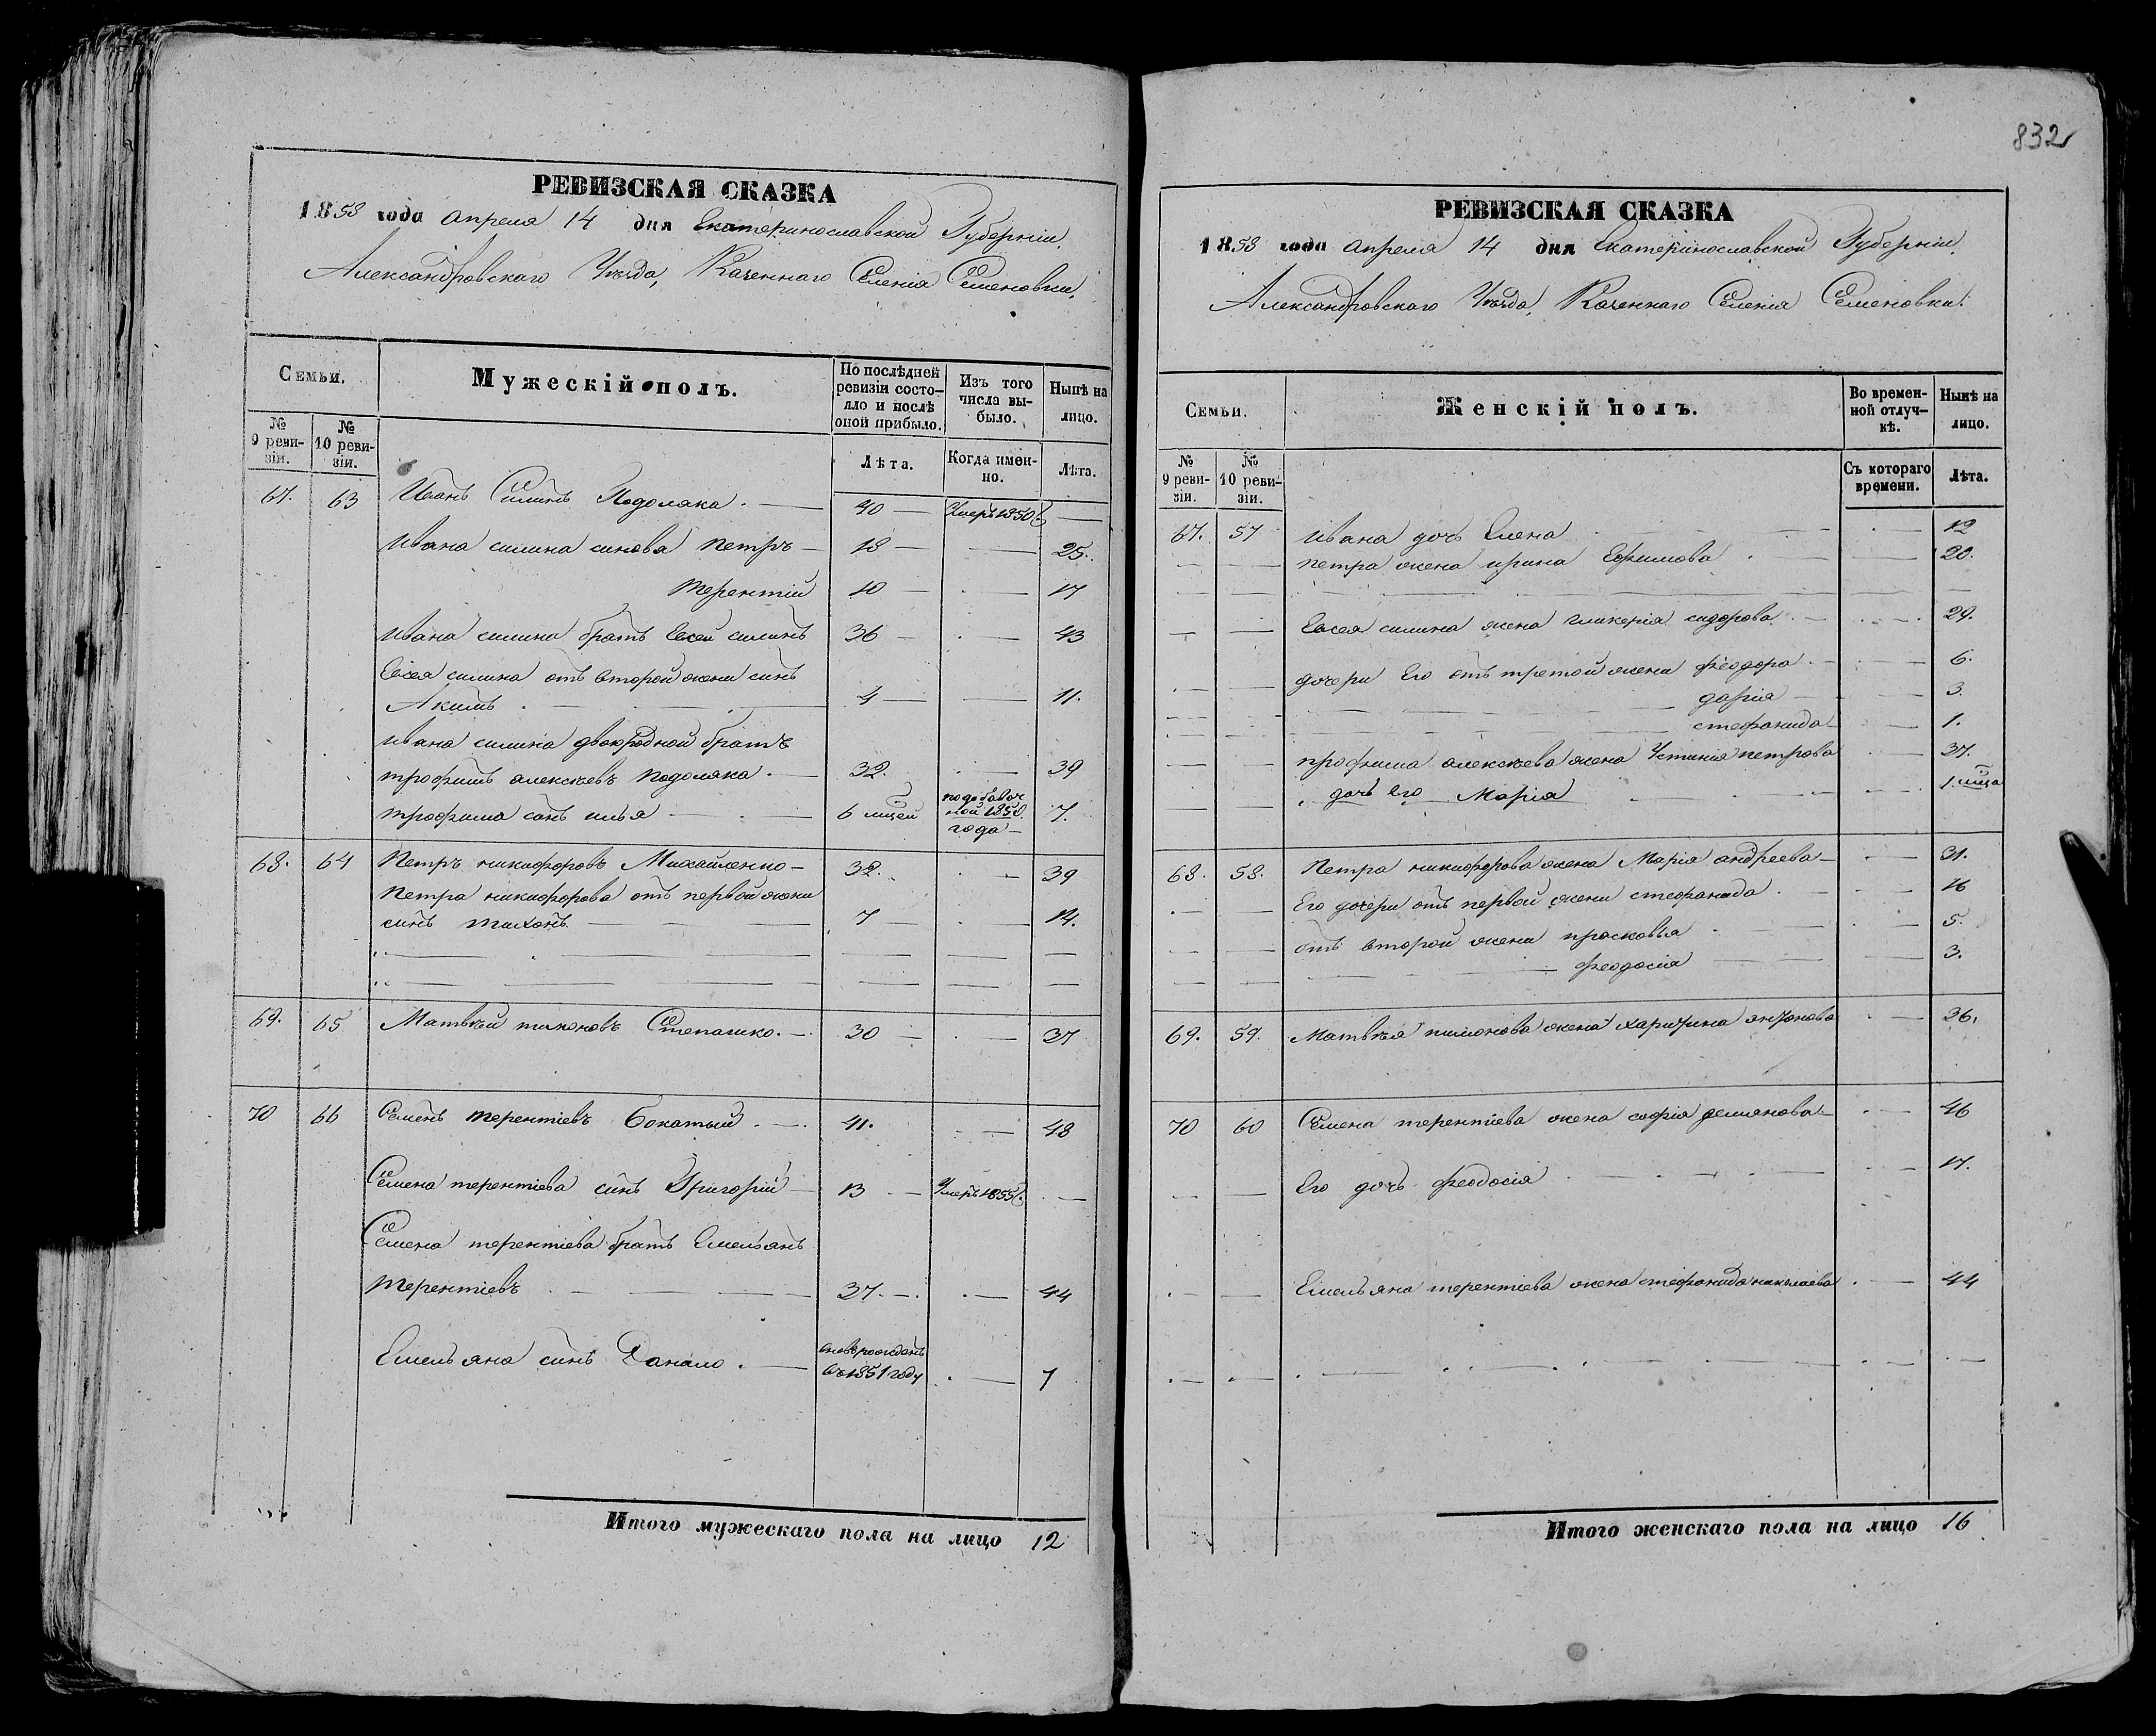 РЕВИЗСКАЯ СКАЗКА
1858 года апреля 14 дня Екатеринославской Губерніи,
Александровскаго Уѣзда, Казеннаго Селенія Семеновки,
Семьи.
Мужескій полъ.
По послѣдней ревизіи состо-
яло и послѣ
оной прибыло.
Изъ того
числа вы-
было.
Нынѣ на
лицо.
№
9 реви-
зіи.
№
10 реви-
зіи.
Лѣта.
Когда имен-
но.
Лѣта.
67. 63 Иванъ Силинъ Подоляка. — 40 — Умеръ 1850 —
Ивана силина синова петръ — 18 — — 25.
терентій 10 — . — 17
Ивана силина братъ Евсей силинъ 36 — . — 43
Евсея силина отъ второй жени синъ
Акимъ . — 4 — — 11.
ивана силина двоюродной братъ
трофимъ алексѣевъ подоляка . — 32. . — 39
трофима синъ илья — 6 мцей подобавоч
ной 1850
года — 7.
68. 64 Петръ никифоровъ Михайленко — 32. . — 39
петра никифорова отъ первой жени
синъ тихонъ — 7 — . — 14.
69. 65 Матвѣй пимоновъ Степашко. — 30 — . — 37
70 66 Семенъ терентіевъ Бокатый . — 41. . — 48
Семена терентіева синъ Григорій — 13 . — Умеръ 1855 . —
Семена терентіева братъ Емельянъ
терентіевъ . — 37. — . . — 44
Емельяна синъ Данило . — вноврожденъ
въ 1851 году . — 7
Итого мужескаго пола на лицо 12
832
РЕВИЗСКАЯ СКАЗКА
1858 года апреля 14 дня Екатеринославской Губерніи,
Александровскаго Уѣзда, Казеннаго Селенія Семеновки.
Семьи.
Женскій полъ.
Во времен-
ной отлуч-
кѣ.
Нынѣ на
лицо.
№
9 реви-
зіи.
№
10 реви-
зіи.
Съ котораго
времени.
Лѣта.
67. 57 Ивана дочъ Елена . — 12
петра жена ирина Ефимова . — 20.
Евсея силина жена гликерія сидорова . — 29.
дочери его отъ третой жени феодора . — 6.
дарія — 3.
стефанида — 1.
трофима алексѣева жена Устинія петрова . — 37.
дочъ его Марія . — 1. мца
68. 58. Петра никифорова жена Марія андреева — . — 31.
Его дочери отъ первой жени стефанида . — 16
отъ второй жени прасковья . — 5.
феодосія — 3.
69. 59. Матвѣя пимонова жена харитина антонова . — 36.
70 60 Семена терентіева жена софія демянова — . — 46
Его дочъ феодосія . — 17.
Емельяна терентіева жена стефанида николаева . — 44
Итого женскаго пола на лицо 16